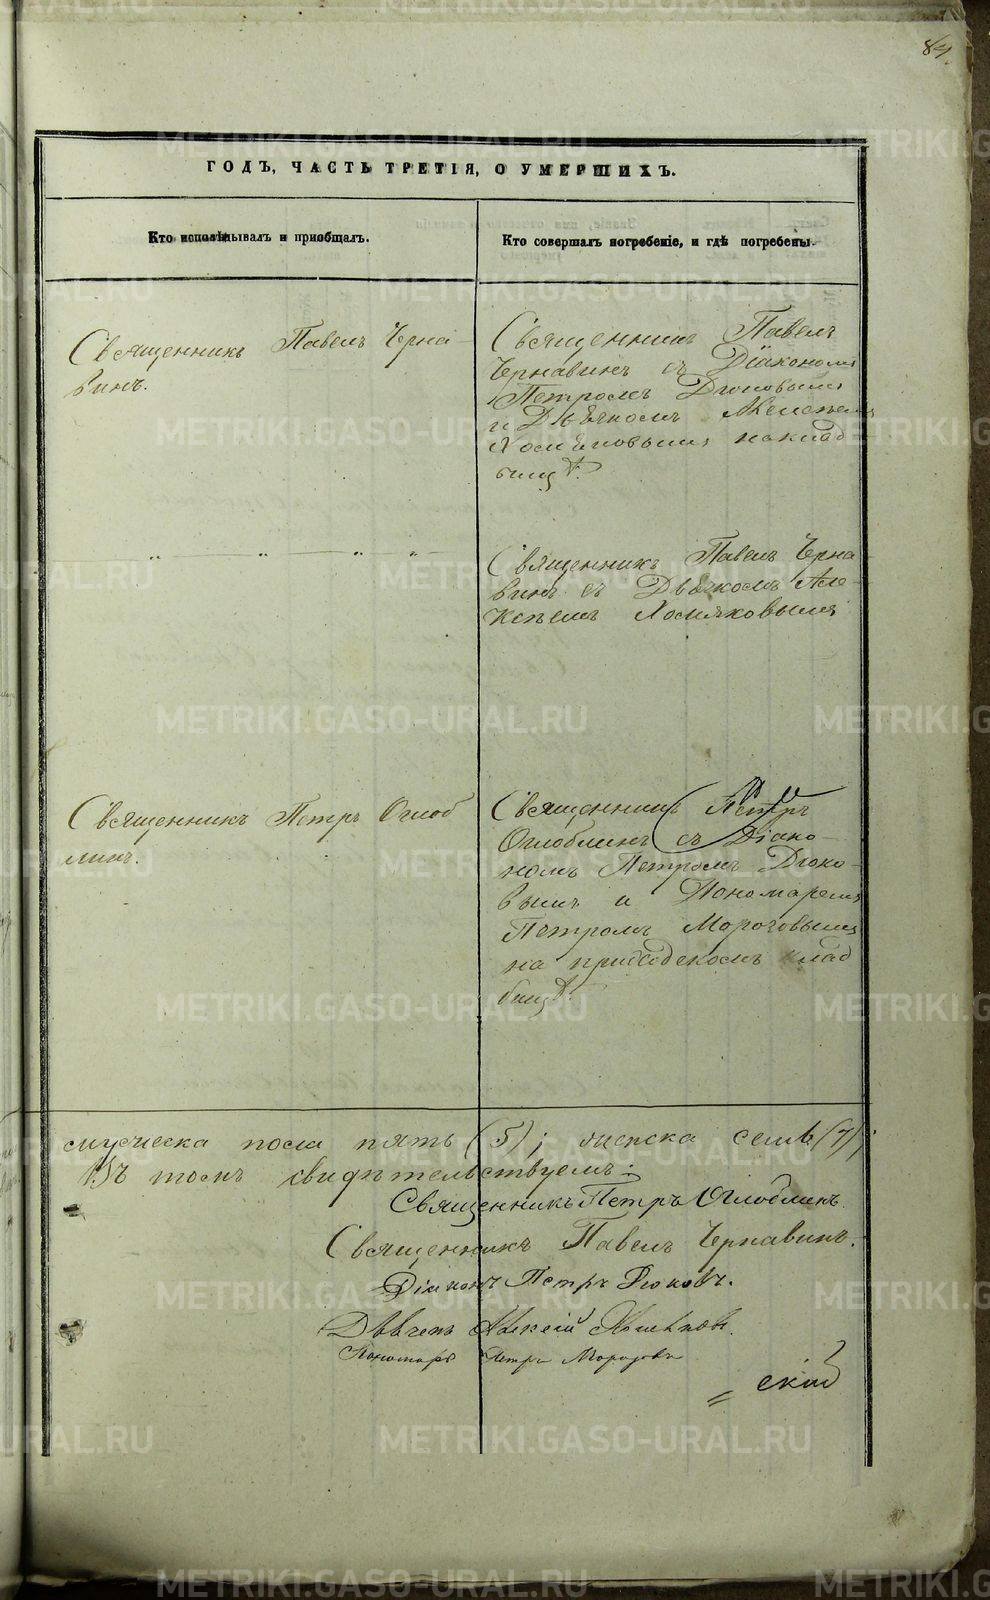 84.
ГОДЪ, ЧАСТЬ ТРЕТІЯ, О УМЕРШИХЪ.
Кто исповѣдывалъ и пріобщалъ.
Кто совершалъ погребеніе, и гдѣ погребены.
Священникъ Павелъ Черна
винъ.
Священникъ Павелъ
Чернавинъ съ Діакономъ
Петромъ
и Дьячкомъ Алексѣемъ
Хомяковымъ на клад
бищѣ.
" " " "
Священникъ Павелъ Черна
винъ съ Дьячкомъ Але
ксѣемъ Хомяковымъ
Священникъ Петръ Оглоб
линъ.
Священникъ Петръ
Оглоблинъ съ Діако
номъ Петромъ
вымъ и Пономаремъ
Петромъ Морозовымъ
на приходскомъ клад
бищѣ.
мужеска пола пять (5); женска семь (7);
Въ томъ свидѣтельствуемъ:
Священникъ Петръ Оглоблинъ.
Священникъ Павелъ Чернавинъ.
Діаконъ Петръ
Дьячекъ Алексѣй Хомяковъ.
Пономарь Петръ Морозовъ
скій
METRIKI.GASO-URAL.RU